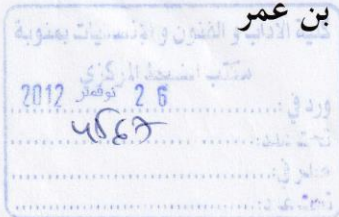 بن عمر
كلية الآداب و الفنون و الإنسانيات بمنوبة
مكتب الضبط المركزي
ورد في: 26 نوفمبر 2012
تحت عدد: 4567
صادر في:
تحت عدد: